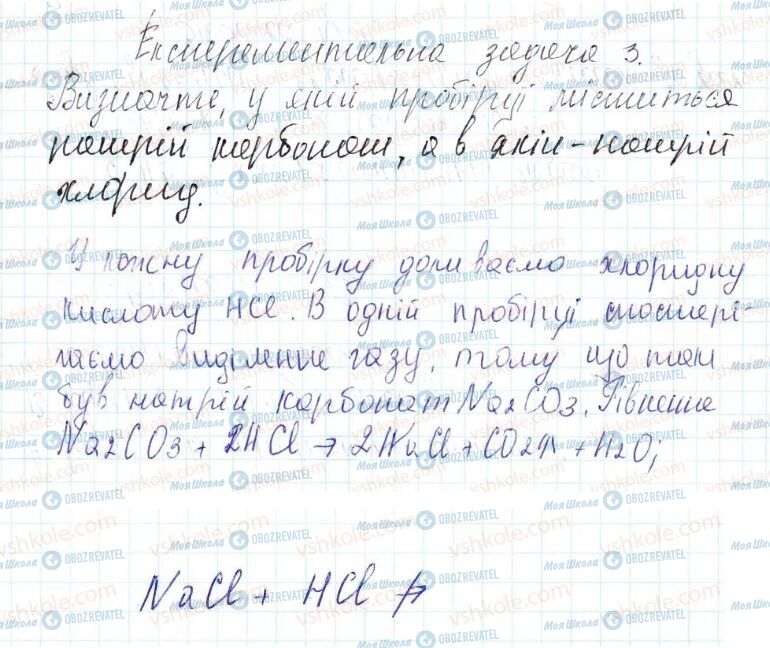 Експерементальна задача 3.
Визначте, у якій пробірці міститься
натрій карбонат, а в якій - натрій
хлорид.
У кожну пробірку доливаємо хлоридну
кислоту HCl. В одній пробірці спостері-
гаємо виділення газу, тому що там
був натрій карбонат Na2CO3. Рівняння
Na2CO3 + 2HCl → 2NaCl + CO2↑ + H2O,
NaCl + HCl ↛